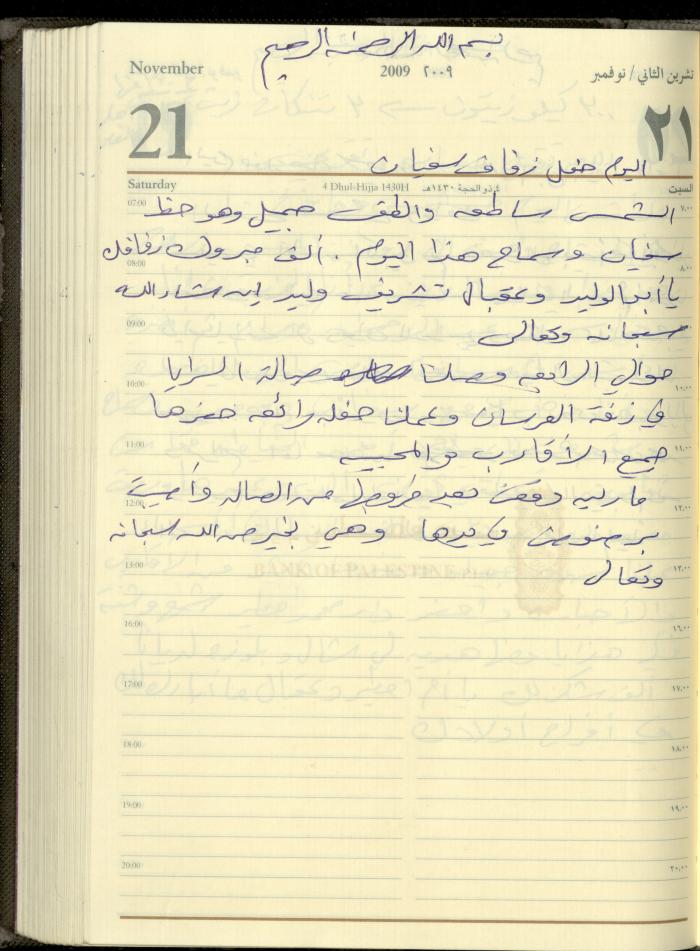 بسم الله الرحمن الرحيم
November 2009 ٢٠٠٩ تشرين الثاني / نوفمبر
21 ٢١
اليوم حفل زفاف سفيان
Saturday 4 Dhul-Hijja 1430H ٤ ذو الحجة ١٤٣٠هـ السبت
07:00 ٧،٠٠
الشمس ساطعه والطقس جميل وهو حظ
سفيان وسماح هذا اليوم . ألف مبروك زفافك
08:00 ٨،٠٠
يا أبو الوليد وعقبال تشريف وليد ان شاء الله
09:00
سبحانه وتعالى
حوالي الرابعه وصلنا صالة السرايا
10:00 ١٠،٠٠
في زفة العرسان وعملنا حفله رائعه حضرها
11:00 ١١،٠٠
جميع الأقارب والمحبين
ماريه وقعت بعد خروجها من الصاله وأصيبت
12:00 ١٢،٠٠
برضوض في يدها وهي بخير من الله سبحانه
13:00 ١٣،٠٠
وتعالى
BANK OF PALESTINE
16:00 ١٦،٠٠
17:00 ١٧،٠٠
18:00 ١٨،٠٠
19:00 ١٩،٠٠
20:00 ٢٠،٠٠